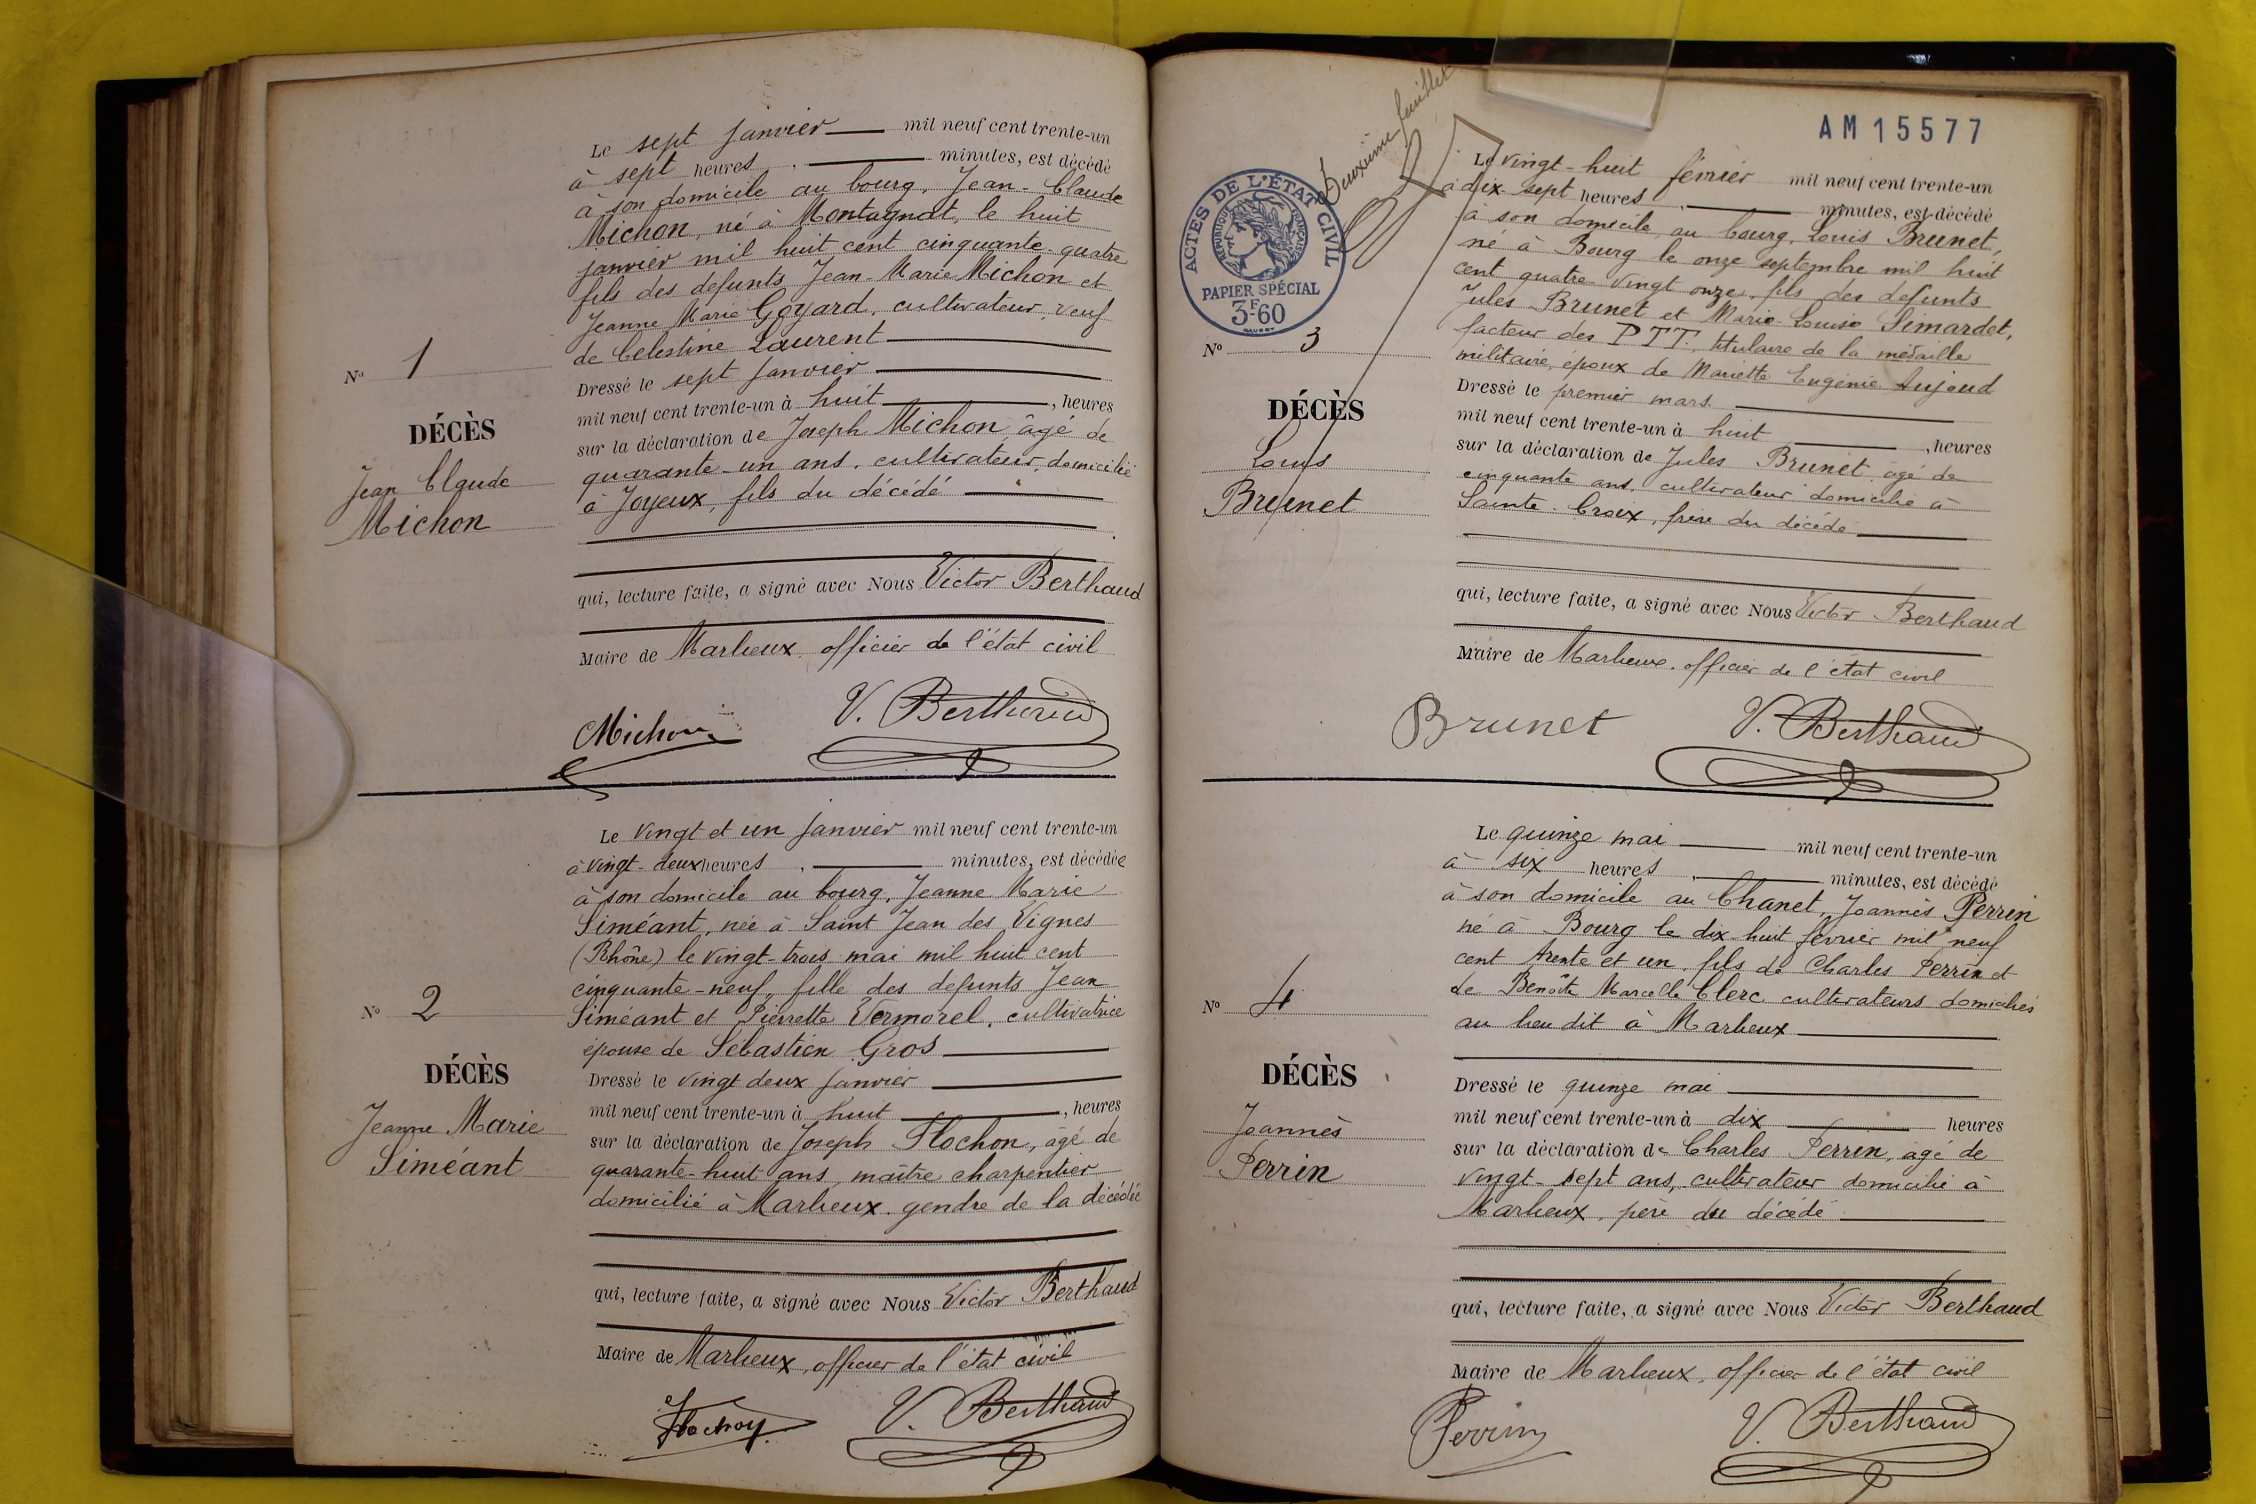 Le sept janvier mil neuf cent trente-un
à sept heures minutes, est décédé
à son domicile au bourg, Jean-Claude
Michon, né à Montagnat, le huit
janvier mil huit cent cinquante-quatre
fils des defunts Jean-Marie Michon et
Jeanne Marie Goyard, cultivateur, veuf
de Celestine Laurent
Dressé le sept janvier
mil neuf cent trente-un à huit, heures
sur la déclaration de Joseph Michon, âgé de
quarante-un ans, cultivateur, domicilié
à Joyeux, fils du décédé
qui, lecture faite, a signé avec Nous Victor Berthaud
Maire de Marlieux officier de l'état civil
Michon V. Berthaud
No 1
DÉCÈS
Jean Claude
Michon
Le vingt et un janvier mil neuf cent trente-un
à vingt-deux heures minutes, est décédée
à son domicile au bourg, Jeanne Marie
Siméant, née à Saint Jean des Vignes
(Rhône) le vingt-trois mai mil huit cent
cinquante-neuf, fille des defunts Jean
Siméant et Pierrette Vermorel, cultivatrice
épouse de Sébastien Gros
Dressé le vingt deux janvier
mil neuf cent trente-un à huit, heures
sur la déclaration de Joseph Flochon, âgé de
quarante-huit ans, maître charpentier
domicilié à Marlieux, gendre de la décédée
qui, lecture faite, a signé avec Nous Victor Berthaud
Maire de Marlieux, officier de l'état civil
V. Berthaud
No 2
DÉCÈS
Jeanne Marie
Siméant
AM15577
Deuxième feuillet
ACTES DE L'ÉTAT CIVIL
RÉPUBLIQUE FRANÇAISE
PAPIER SPÉCIAL
3F60
Le vingt-huit février mil neuf cent trente-un
à dix-sept heures minutes, est décédé
à son domicile au bourg, Louis Brunet,
né à Bourg le onze septembre mil huit
cent quatre vingt onze, fils des defunts
Jules Brunet et Marie-Louise Simardet,
facteur des PTT., titulaire de la médaille
militaire, époux de Mariette Eugénie Aujoud
Dressé le premier mars
mil neuf cent trente-un à huit, heures
sur la déclaration de Jules Brunet âgé de
cinquante ans, cultivateur domicilié à
Sainte-Croix, frère du décédé
qui, lecture faite, a signé avec Nous Victor Berthaud
Maire de Marlieux, officier de l'état civil
Brunet V. Berthaud
No 3
DÉCÈS
Louis
Brunet
Le quinze mai mil neuf cent trente-un
à six heures minutes, est décédé
à son domicile au Chanet, Joannès Perrin
né à Bourg le dix-huit février mil neuf
cent trente et un, fils de Charles Perrin et
de Benoîte Marcelle Clerc cultivateurs domiciliés
au lieu dit à Marlieux
Dressé le quinze mai
mil neuf cent trente-un à dix heures
sur la déclaration de Charles Perrin, âgé de
vingt-sept ans, cultivateur domicilié à
Marlieux, père du décédé
qui, lecture faite, a signé avec Nous Victor Berthaud
Maire de Marlieux, officier de l'état civil
Perrin V. Berthaud
No 4
DÉCÈS
Joannès
Perrin